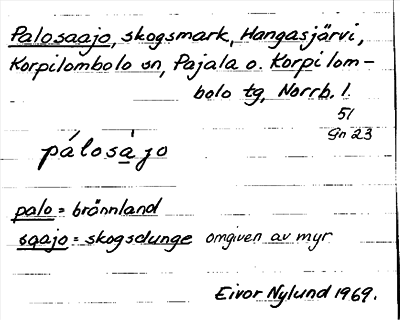 Palosaajo, skogsmark, Hangasjärvi,
Korpilombolo sn, Pajala o. Korpilom-
bolo tg, Norrb. l.
51
Gn 23
pálosàjo
palo = brännland
saajo = skogsdunge omgiven av myr
Eivor Nylund 1969.